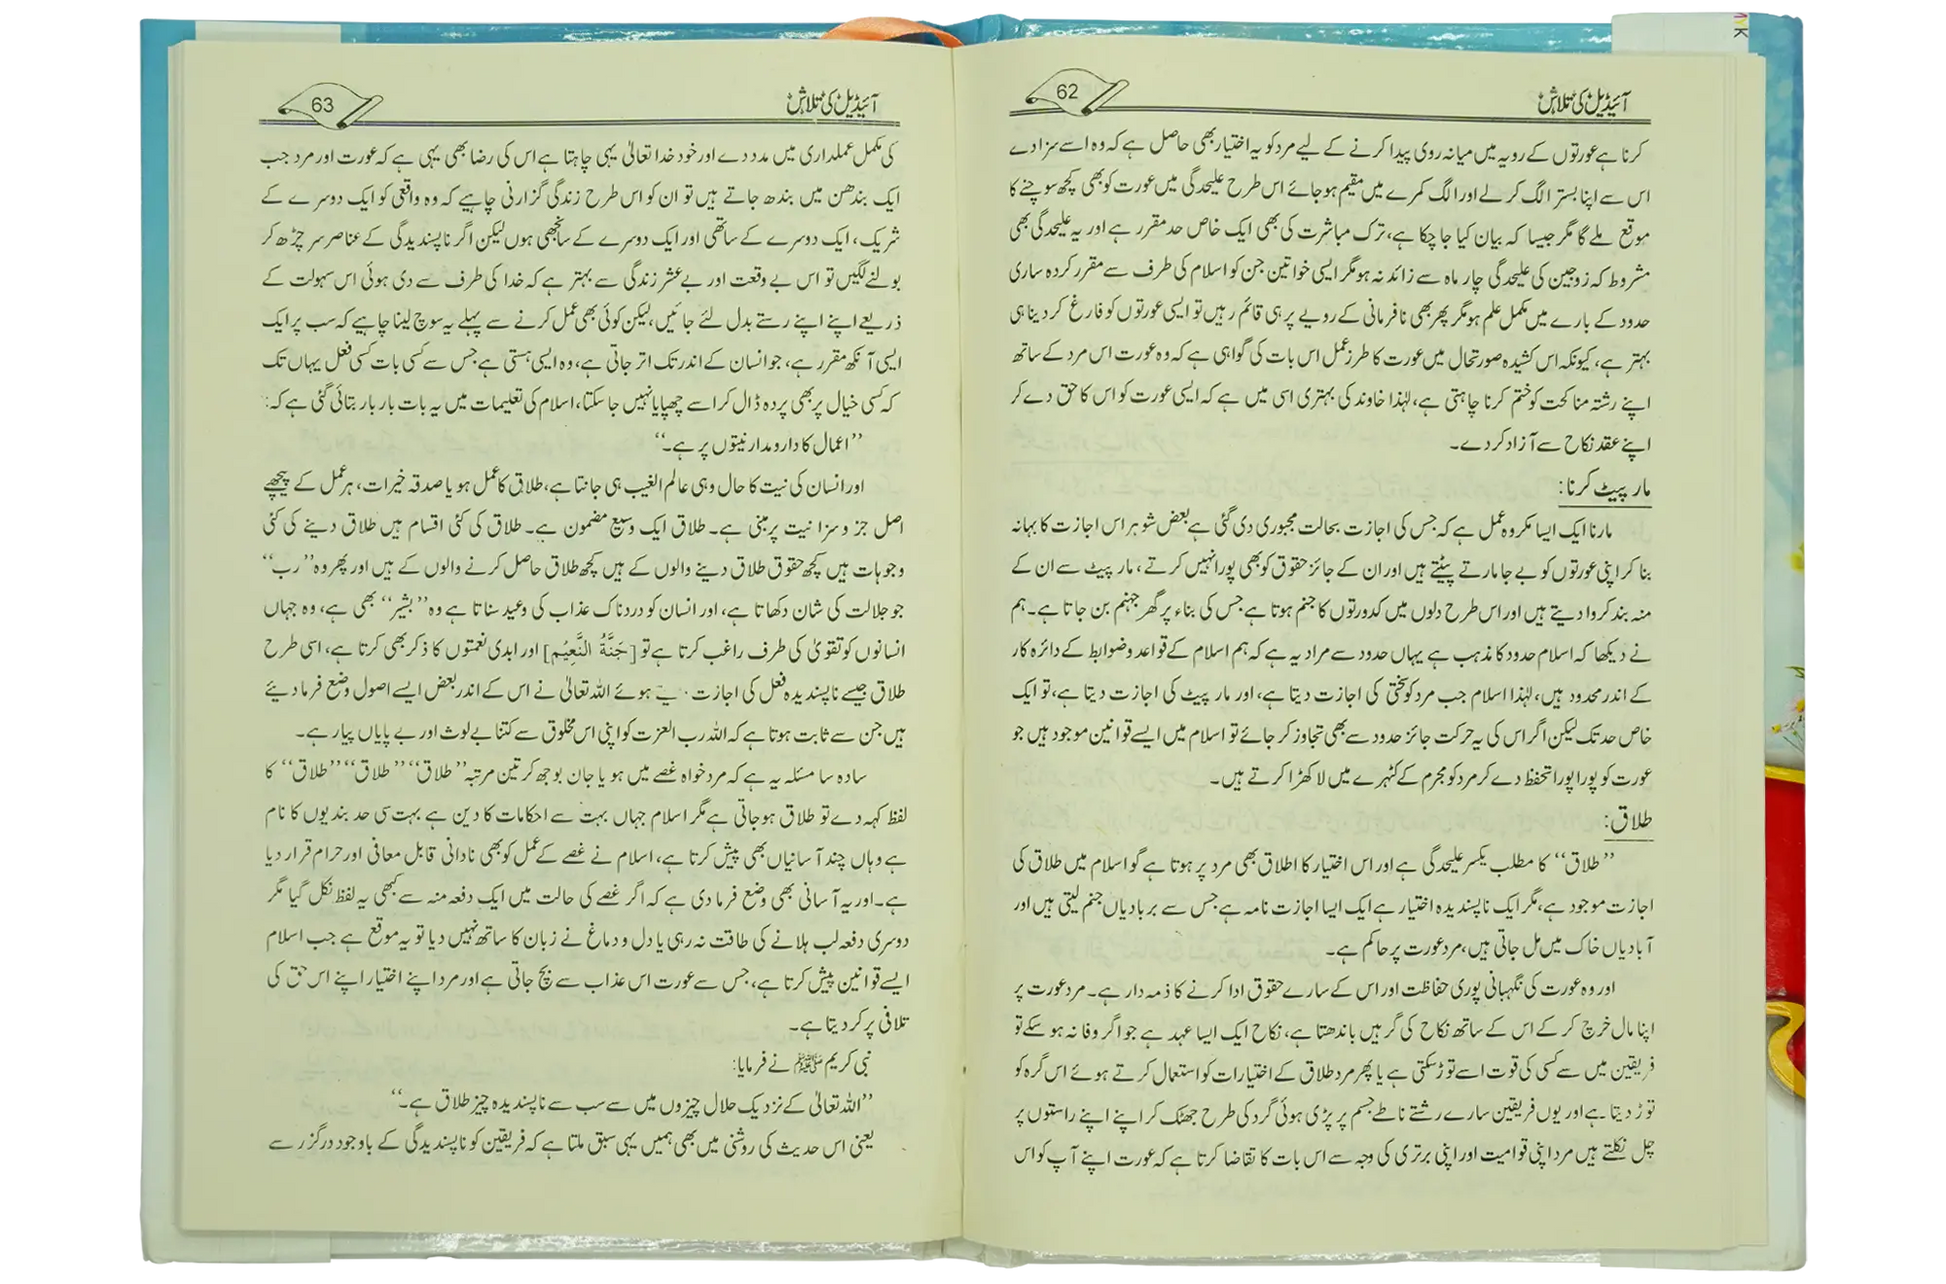 آئیڈیل کی تلاش 62
کرنا ہے عورتوں کے رویہ میں میانہ روی پیدا کرنے کے لیے مرد کو یہ اختیار بھی حاصل ہے کہ وہ اسے سزا دے
اس سے اپنا بستر الگ کر لے اور الگ کمرے میں مقیم ہو جائے اس طرح علیحدگی میں عورت کو بھی کچھ سوچنے کا
موقع ملے گا مگر جیسا کہ بیان کیا جا چکا ہے، ترک مباشرت کی بھی ایک خاص حد مقرر ہے اور یہ علیحدگی بھی
مشروط کہ زوجین کی علیحدگی چار ماہ سے زائد نہ ہو مگر ایسی خواتین جن کو اسلام کی طرف سے مقرر کردہ ساری
حدود کے بارے میں مکمل علم ہو مگر پھر بھی نافرمانی کے رویے پر ہی قائم رہیں تو ایسی عورتوں کو فارغ کر دینا ہی
بہتر ہے، کیونکہ اس کشیدہ صورتحال میں عورت کا طرز عمل اس بات کی گواہی ہے کہ وہ عورت اس مرد کے ساتھ
اپنے رشتہ مناکحت کو ختم کرنا چاہتی ہے، لہٰذا خاوند کی بہتری اسی میں ہے کہ ایسی عورت کو اس کا حق دے کر
اپنے عقد نکاح سے آزاد کر دے۔
مار پیٹ کرنا:
مارنا ایک ایسا مکروہ عمل ہے کہ جس کی اجازت بحالت مجبوری دی گئی ہے بعض شوہر اس اجازت کا بہانہ
بنا کر اپنی عورتوں کو بے جا مارتے پیٹتے ہیں اور ان کے جائز حقوق کو بھی پورا نہیں کرتے، مار پیٹ سے ان کے
منہ بند کروا دیتے ہیں اور اس طرح دلوں میں کدورتوں کا جنم ہوتا ہے جس کی بناء پر گھر جہنم بن جاتا ہے۔ ہم
نے دیکھا کہ اسلام حدود کا مذہب ہے یہاں حدود سے مراد یہ ہے کہ ہم اسلام کے قواعد و ضوابط کے دائرہ کار
کے اندر محدود ہیں، لہٰذا اسلام جب مرد کو سختی کی اجازت دیتا ہے، اور مار پیٹ کی اجازت دیتا ہے، تو ایک
خاص حد تک لیکن اگر اس کی یہ حرکت جائز حدود سے بھی تجاوز کر جائے تو اسلام میں ایسے قوانین موجود ہیں جو
عورت کو پورا پورا تحفظ دے کر مرد کو مجرم کے کٹہرے میں لا کھڑا کرتے ہیں۔
طلاق:
’’طلاق‘‘ کا مطلب یکسر علیحدگی ہے اور اس اختیار کا اطلاق بھی مرد پر ہوتا ہے گو اسلام میں طلاق کی
اجازت موجود ہے، مگر ایک ناپسندیدہ اختیار ہے ایک ایسا اجازت نامہ ہے جس سے بربادیاں جنم لیتی ہیں اور
آبادیاں خاک میں مل جاتی ہیں، مرد عورت پر حاکم ہے۔
اور وہ عورت کی نگہبانی پوری حفاظت اور اس کے سارے حقوق ادا کرنے کا ذمہ دار ہے۔ مرد عورت پر
اپنا مال خرچ کر کے اس کے ساتھ نکاح کی گرہیں باندھتا ہے، نکاح ایک ایسا عہد ہے جو اگر وفا نہ ہو سکے تو
فریقین میں سے کسی کی قوت اسے توڑ سکتی ہے یا پھر مرد طلاق کے اختیارات کو استعمال کرتے ہوئے اس گرہ کو
توڑ دیتا ہے اور یوں فریقین سارے رشتے ناطے جسم پر پڑی ہوئی گرد کی طرح جھٹک کر اپنے اپنے راستوں پر
چل نکلتے ہیں مرد اپنی قوامیت اور اپنی برتری کی وجہ سے اس بات کا تقاضا کرتا ہے کہ عورت اپنے آپ کو اس
آئیڈیل کی تلاش 63
کی مکمل عملداری میں مدد دے اور خود خدا تعالیٰ یہی چاہتا ہے اس کی رضا بھی یہی ہے کہ عورت اور مرد جب
ایک بندھن میں بندھ جاتے ہیں تو ان کو اس طرح زندگی گزارنی چاہیے کہ وہ واقعی کو ایک دوسرے کے
شریک، ایک دوسرے کے ساتھی اور ایک دوسرے کے سانجھی ہوں لیکن اگر ناپسندیدگی کے عناصر سر چڑھ کر
بولنے لگیں تو اس بے وقعت اور بے عشر زندگی سے بہتر ہے کہ خدا کی طرف سے دی ہوئی اس سہولت کے
ذریعے اپنے اپنے رستے بدل لئے جائیں، لیکن کوئی بھی عمل کرنے سے پہلے یہ سوچ لینا چاہیے کہ سب پر ایک
ایسی آنکھ مقرر ہے، جو انسان کے اندر تک اتر جاتی ہے، وہ ایسی ہستی ہے جس سے کسی بات کسی فعل یہاں تک
کہ کسی خیال پر بھی پردہ ڈال کر اسے چھپایا نہیں جا سکتا، اسلام کی تعلیمات میں یہ بات بار بار بتائی گئی ہے کہ:
’’اعمال کا دارومدار نیتوں پر ہے۔‘‘
اور انسان کی نیت کا حال وہی عالم الغیب ہی جانتا ہے، طلاق کا عمل ہو یا صدقہ خیرات، ہر عمل کے پیچھے
اصل جزو سزا نیت پر مبنی ہے۔ طلاق ایک وسیع مضمون ہے۔ طلاق کی کئی اقسام ہیں طلاق دینے کی کئی
وجوہات ہیں کچھ حقوق طلاق دینے والوں کے ہیں کچھ طلاق حاصل کرنے والوں کے ہیں اور پھر وہ ’’رب‘‘
جو جلالت کی شان دکھاتا ہے، اور انسان کو دردناک عذاب کی وعید سناتا ہے وہ ’’بشیر‘‘ بھی ہے، وہ جہاں
انسانوں کو تقویٰ کی طرف راغب کرتا ہے تو [جَنَّةُ النَّعِیْمِ] اور ابدی نعمتوں کا ذکر بھی کرتا ہے، اسی طرح
طلاق جیسے ناپسندیدہ فعل کی اجازت ہوئے اللہ تعالیٰ نے اس کے اندر بعض ایسے اصول وضع فرما دیئے
ہیں جن سے ثابت ہوتا ہے کہ اللہ رب العزت کو اپنی اس مخلوق سے کتنا بے لوث اور بے پایاں پیار ہے۔
سادہ سا مسئلہ یہ ہے کہ مرد خواہ غصے میں ہو یا جان بوجھ کر تین مرتبہ ’’طلاق‘‘ ’’طلاق‘‘ ’’طلاق‘‘ کا
لفظ کہہ دے تو طلاق ہو جاتی ہے مگر اسلام جہاں بہت سے احکامات کا دین ہے بہت سی حد بندیوں کا نام
ہے وہاں چند آسانیاں بھی پیش کرتا ہے، اسلام نے غصے کے عمل کو بھی نادانی قابل معافی اور حرام قرار دیا
ہے۔ اور یہ آسانی بھی وضع فرما دی ہے کہ اگر غصے کی حالت میں ایک دفعہ منہ سے کبھی یہ لفظ نکل گیا مگر
دوسری دفعہ لب ہلانے کی طاقت نہ رہی یا دل و دماغ نے زبان کا ساتھ نہیں دیا تو یہ موقع ہے جب اسلام
ایسے قوانین پیش کرتا ہے، جس سے عورت اس عذاب سے بچ جاتی ہے اور مرد اپنے اختیار اپنے اس حق کی
تلافی پر کر دیتا ہے۔
نبی کریم ﷺ نے فرمایا:
’’اللہ تعالیٰ کے نزدیک حلال چیزوں میں سے سب سے ناپسندیدہ چیز طلاق ہے۔‘‘
یعنی اس حدیث کی روشنی میں بھی ہمیں یہی سبق ملتا ہے کہ فریقین کو ناپسندیدگی کے باوجود درگزر سے